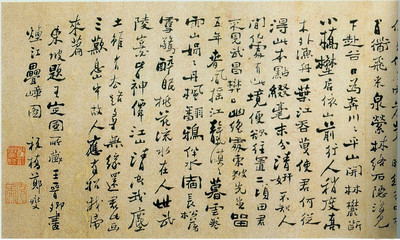 百道飛來泉縈林絡石隱復見
下赴谷口為奔川川平山開林麓斷
小橋野店依山前行人稍度喬
木外漁舟一葉江吞天使君何從
得此本點綴毫末分清妍不知人
間何處有此境便欲往置二頃田君
不見武昌樊口幽絕處東坡先生留
五年春風搖江天漠漠暮雲卷
雨山娟娟丹楓翻鴉伴水宿長松落
雪驚醉眠桃花流水在人世武
陵豈必皆神儒江山清空我塵
土雖有去路尋無緣還君此畫
三歎息山中故人應有招我歸
來篇
東坡題王定國所藏王晉卿畫
煙江疊嶂圖 板橋鄭燮